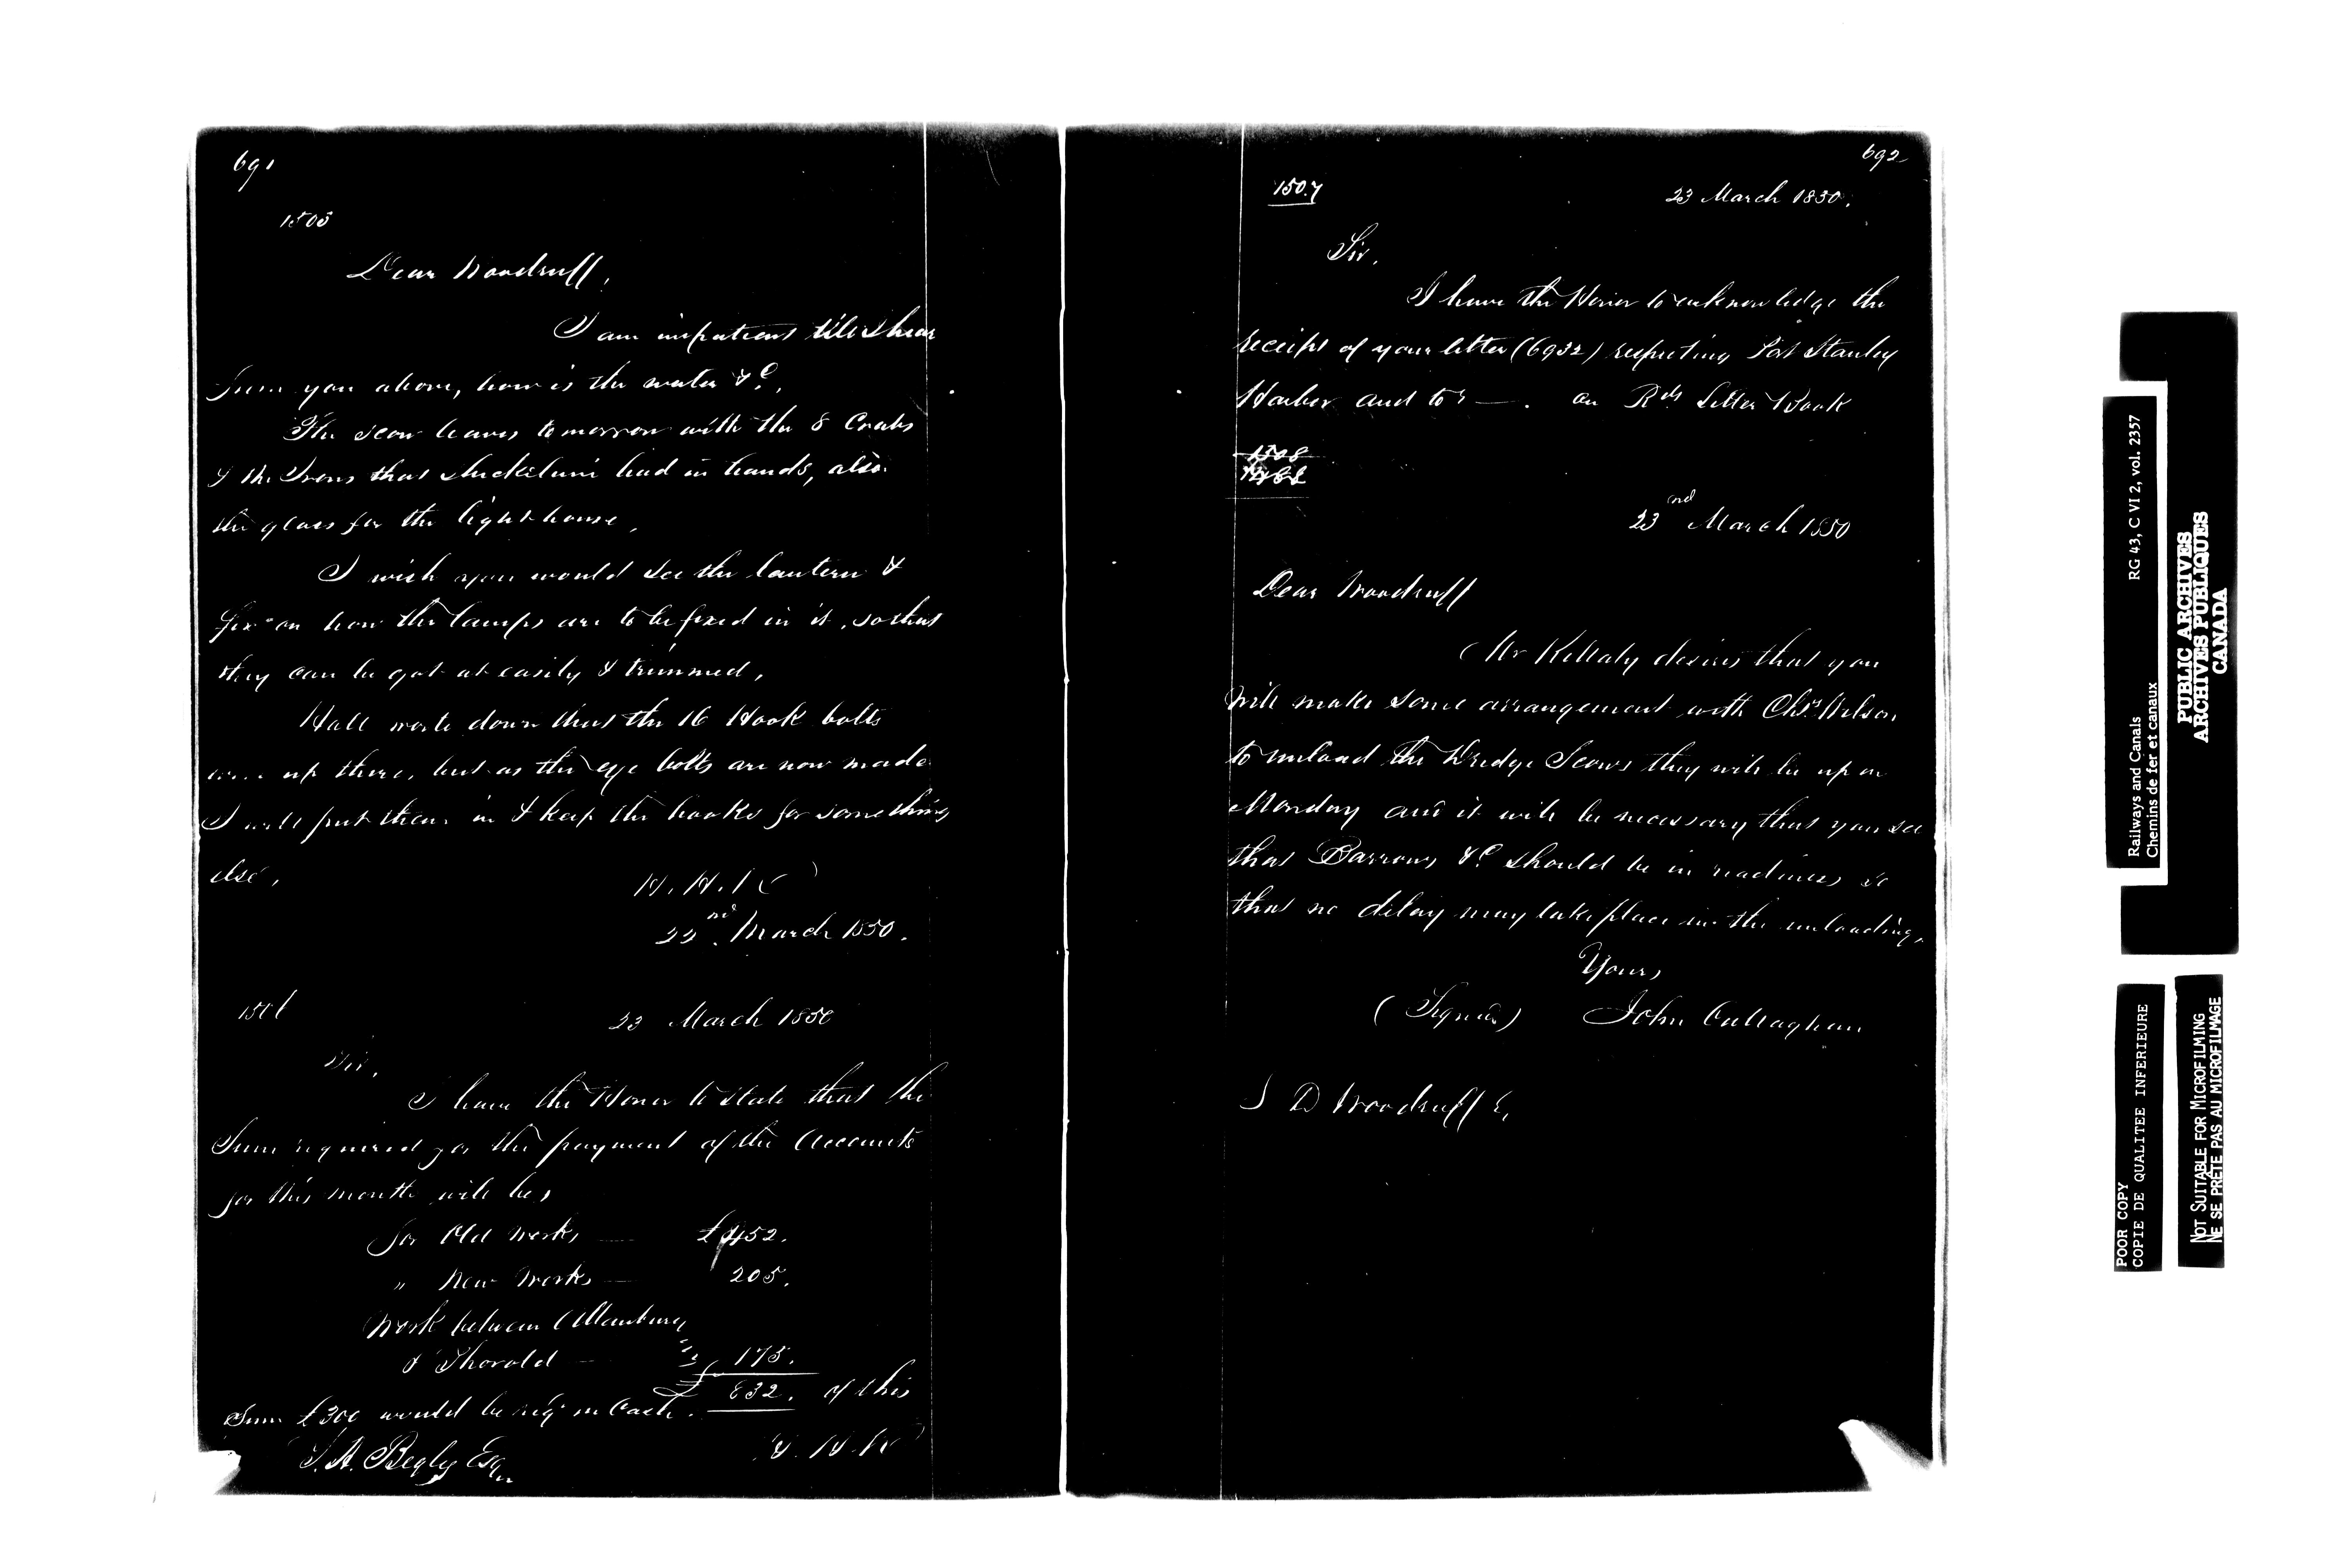 691
1505
Dear Woodruff,
I am impatient till I hear
from you above, how is the water &c,
The scow leaves tomorrow with the 8 Crabs
& the Irons that had in hands, also
the glass for the light house,
I wish you would see the lantern &
fix on how the lamps are to be fixed in it, so that
they can be got at easily & trimmed,
Hall wrote down that the 16 Hook bolts
were up there, but as the eye bolts are now made
I will put them in & keep the hooks for something
else,
H. H. K
22nd March 1850.
1506
23 March 1850
Sir,
I have the Honor to state that the
Sum required for the payment of the Accounts
for this month will be,
for Old Works — £452.
" New Works — 205.
Work between Allanburg
& Thorold — 175.
£ 832. of this
Sum £300 would be reqd in Cash.
H. H. K
T. A. Begly Esqr
692
1507
23 March 1850.
Sir,
I have the Honor to acknowledge the
receipt of your letter (6932) respecting Port Stanley
Harbor and to —. on Rds Letter Book
1508
23rd March 1850
Dear Woodruff
Mr Killaly desires that you
will make some arrangement with Chs. Wilson
to unload the Dredge Scows they will be up on
Monday and it will be necessary that you see
that Barrows &c should be in readiness so
that no delay may take place in the unloading,
Yours,
(Signed) John Callaghan
S D Woodruff E,
Railways and Canals
Chemins de fer et canaux
RG 43, C VI 2, vol. 2357
PUBLIC ARCHIVES
ARCHIVES PUBLIQUES
CANADA
POOR COPY
COPIE DE QUALITEE INFERIEURE
NOT SUITABLE FOR MICROFILMING
NE SE PRÊTE PAS AU MICROFILMAGE